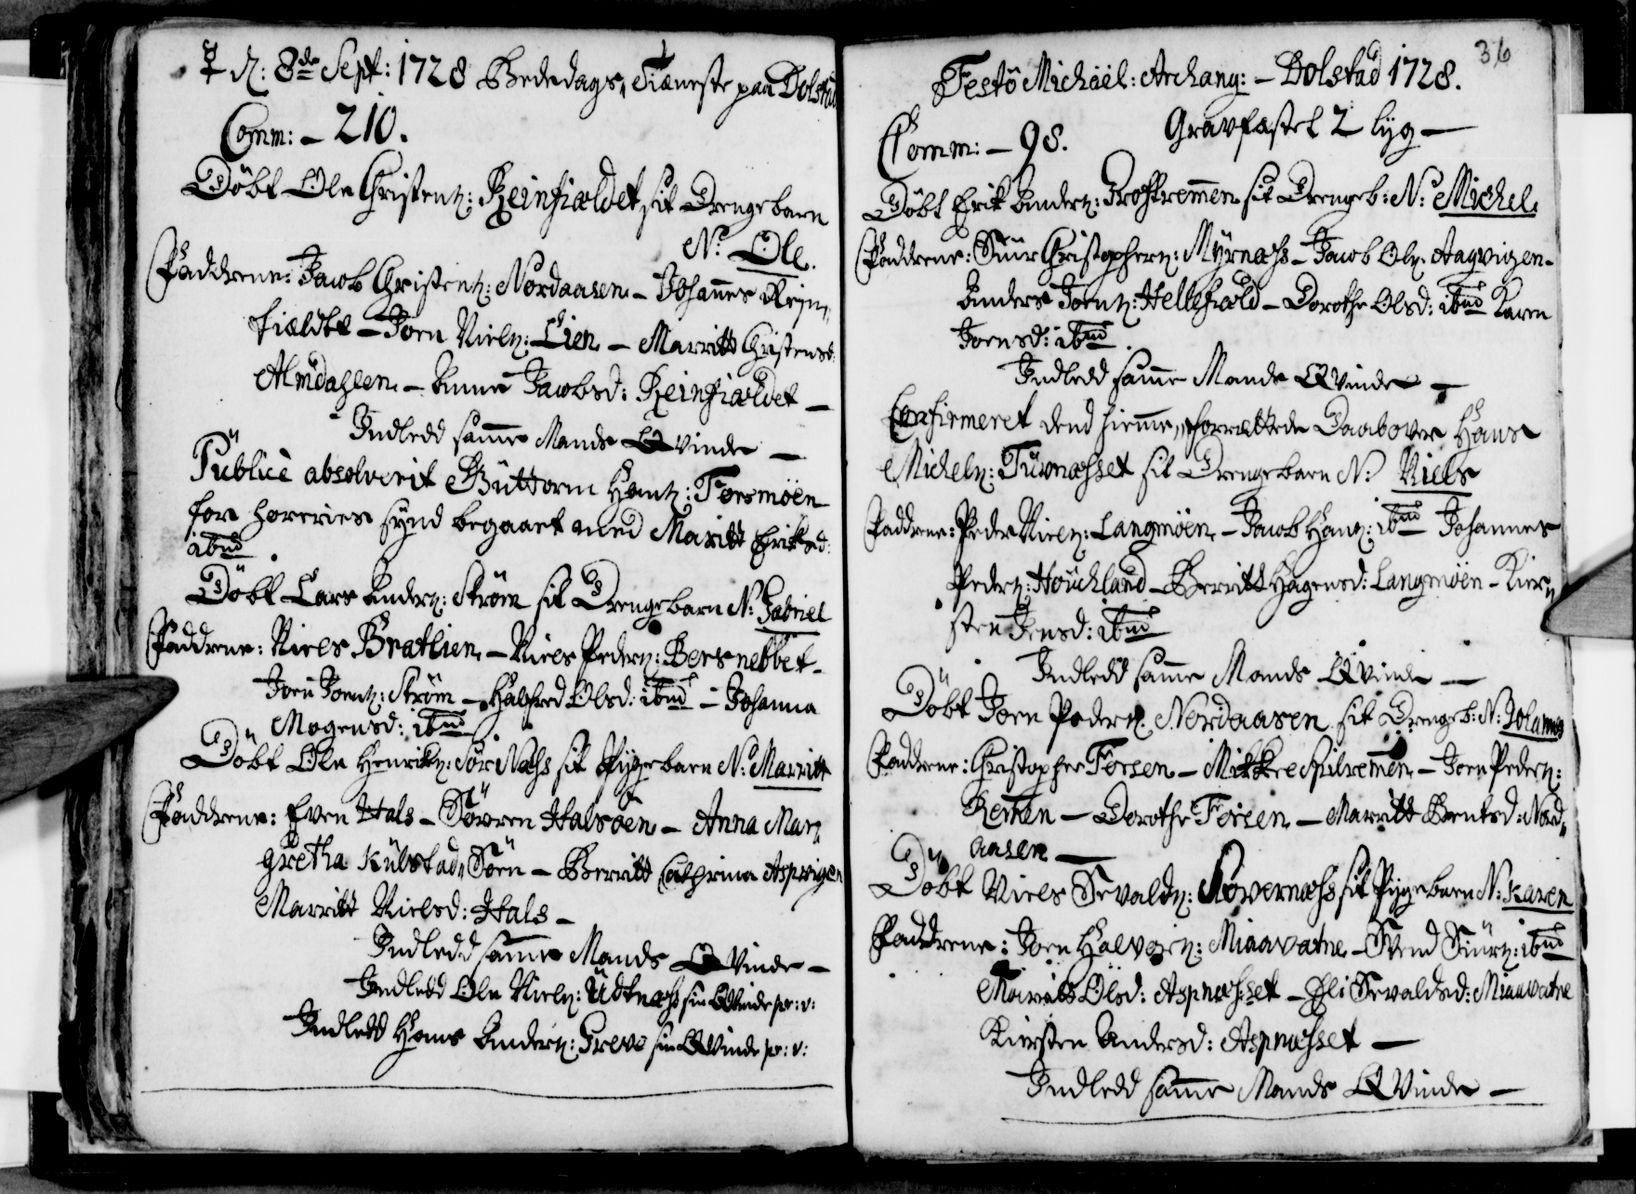 ♀ d: 8de Sept: 1728 Bededags,, Tieneste paa Dolstad
Comm: – 210.
Döbt Ole Christenz: Reinfieldet sit Drengebarn
N: Ole.
Faddrene: Jacob Christenz: Nordaasen – Johannes Rejn,,
fieldet – Joen Nielz: Lien – Marritt Christensd:
Almdahlen – Anne Jacobsd: Reinfieldet –
Indledd samme Mands Qvinde –
Publicè absolverit Guttorm Hanz: Forsmöen
for Horeries synd begaaet med Maritt Eriksd:
ibid.
Döbt Lars Anderz: Ström sit Drengebarn N: Gabriel
Faddrene: Niels Brattlien – Niels Pederz: Bersnebbet –
Joen Joenz: Ström – Halfred Olsd: ibid – Johanna
Mogensd: ibid.
Döbt Ole Henrikz: Sör Næss sit Pigebarn N: Marritt
Faddrene: Even Hals – Sövren Halsöen – Anna Mar,,
gretha Kulstad,, Söen – Berritt Cathrina Aspvigen
Marritt Nielsd: Hals –
Indledd samme Mands Qvinde –
Indledd Ole Nielz: Udtnæss sin Qvinde pr: v:
Indledd Hans Anderz: Greve sin Qvinde pr: v:
36
Festo Michaël: Archang: – Dolstad 1728.
Comm: – 98. Gravfæstet 2 lyg –
Döbt Erik Anderz: Troskremmen sit Drengeb: N: Michel.
Faddrene: Siur Christopherz: Myrnæss – Jacob Olz. Aagvigen –
Anders Joenz: Hellefield – Dorothe Olsd: ibid Karen
Joensd: ibid.
Indledd samme Mands Qvinde –
Confirmeret dend hiemme,, forrættede Daab over Hans
Michelz: Tuvnæsset sit Drengebarn N: Niels
Faddrene: Peder Nielz: Langmöen – Jacob Hanz: ibid Johannes
Pederz: Houchland – Berritt Hagensd: Langmöen – Kier,,
sten Jensd: ibid
Indledd samme Mands Qvinde –
Döbt Joen Pederz. Nordaasen sit Drengeb: N: Johannes
Faddrene: Christopher Forsen – Mikkel Spilremen – Joen Pederz:
Remen – Dorothe Forsen – Marritt Bentsd: Nord,,
aasen –
Döbt Niels Sevaldz: Sövernæss sit Pigebarn N: Karen
Faddrene: Joen Halvorz: Miaavatne – Svend Siurz: ibid
Maritt Olsd: Aspnæsset – Eli Sevaldsd: Miaavatne
Kiersten Andersd: Aspnæsset –
Indledd samme Mands Qvinde –